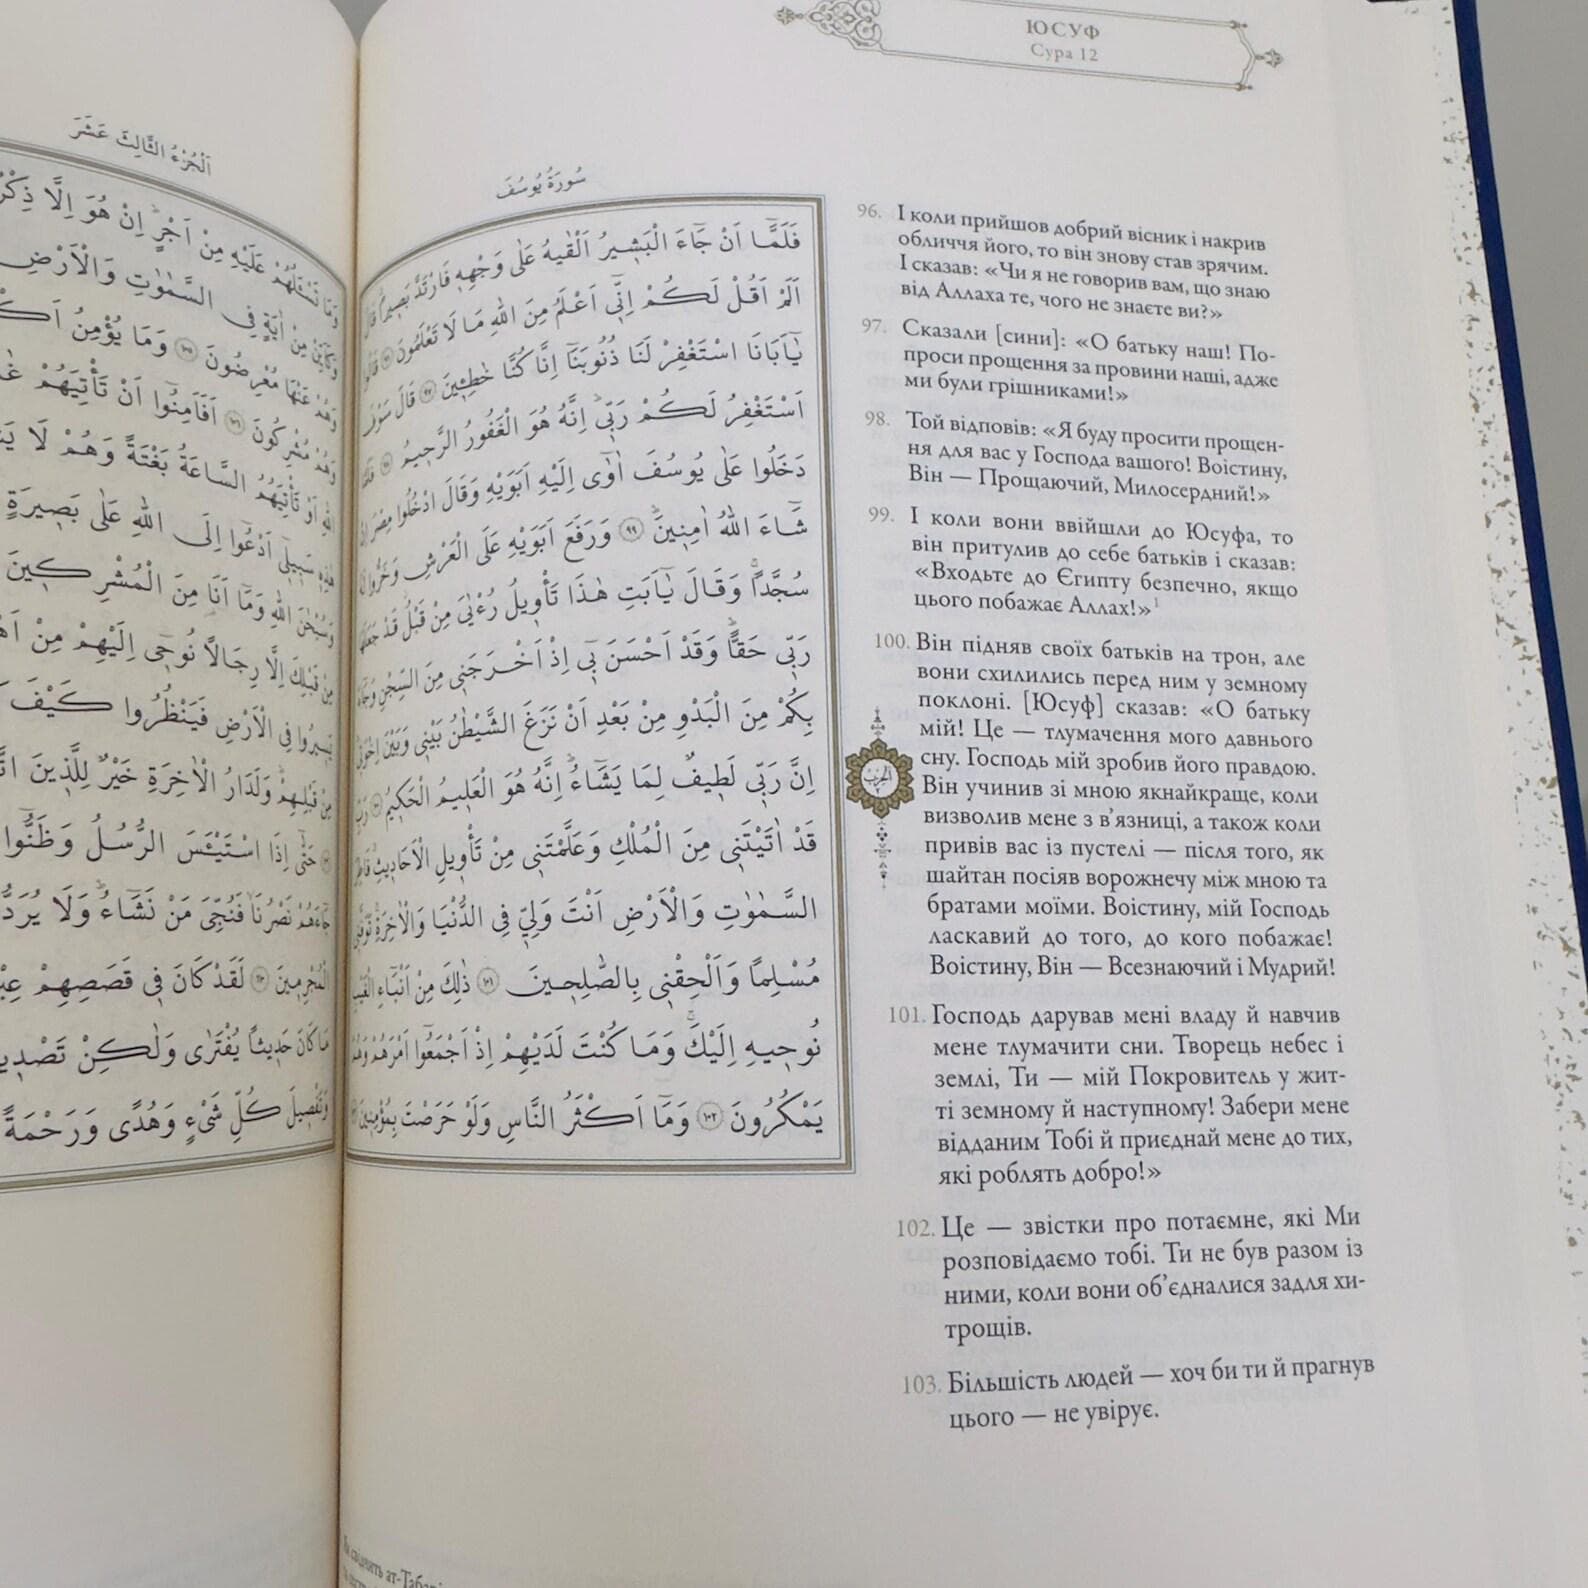 ЮСУФ
Сура 12
اَلْجُزْءُ الثَّالِثَ عَشَرَ
سُورَةُ يُوسُفَ
وَمَا تَسْـَٔلُهُمْ عَلَيْهِ مِنْ اَجْرٍۜ اِنْ هُوَ اِلَّا ذِكْرٌ
وَكَاَيِّنْ مِنْ اٰيَةٍ فِي السَّمٰوَاتِ وَالْاَرْضِ
وَهُمْ عَنْهَا مُعْرِضُونَ ﴿١٠٥﴾ وَمَا يُؤْمِنُ
وَهُمْ مُشْرِكُونَ ﴿١٠٦﴾ اَفَاَمِنُٓوا اَنْ تَأْتِيَهُمْ
اللّٰهِ اَوْ تَأْتِيَهُمُ السَّاعَةُ بَغْتَةً وَهُمْ لَا
هٰذِه۪ سَب۪يل۪ٓي اَدْعُٓوا اِلَى اللّٰهِ عَلٰى بَص۪يرَةٍ
وَسُبْحَانَ اللّٰهِ وَمَٓا اَنَا۬ مِنَ الْمُشْرِك۪ينَ
مِنْ قَبْلِكَ اِلَّا رِجَالًا نُوح۪ٓي اِلَيْهِمْ مِنْ
يَس۪يرُوا فِي الْاَرْضِ فَيَنْظُرُوا كَيْفَ
مِنْ قَبْلِهِمْۜ وَلَدَارُ الْاٰخِرَةِ خَيْرٌ لِلَّذ۪ينَ
حَتّٰٓى اِذَا اسْتَيْـَٔسَ الرُّسُلُ وَظَنُّٓوا
جَٓاءَهُمْ نَصْرُنَا فَنُجِّيَ مَنْ نَشَٓاءُۜ وَلَا يُرَدُّ
الْمُجْرِم۪ينَ ﴿١١٠﴾ لَقَدْ كَانَ ف۪ي قَصَصِهِمْ
مَا كَانَ حَد۪يثًا يُفْتَرٰى وَلٰكِنْ
وَتَفْص۪يلَ كُلِّ شَيْءٍ وَهُدًى وَرَحْمَةً
فَلَمَّٓا اَنْ جَٓاءَ الْبَش۪يرُ اَلْقٰيهُ عَلٰى وَجْهِه۪ فَارْتَدَّ بَص۪يرًاۚ قَالَ
اَلَمْ اَقُلْ لَكُمْ اِنّ۪ٓي اَعْلَمُ مِنَ اللّٰهِ مَا لَا تَعْلَمُونَ ﴿٩٦﴾ قَالُوا
يَٓا اَبَانَا اسْتَغْفِرْ لَنَا ذُنُوبَنَٓا اِنَّا كُنَّا خَاطِـ۪ٔينَ ﴿٩٧﴾ قَالَ سَوْفَ
اَسْتَغْفِرُ لَكُمْ رَبّ۪يۜ اِنَّهُ هُوَ الْغَفُورُ الرَّح۪يمُ ﴿٩٨﴾ فَلَمَّا
دَخَلُوا عَلٰى يُوسُفَ اٰوٰٓى اِلَيْهِ اَبَوَيْهِ وَقَالَ ادْخُلُوا مِصْرَ اِنْ
شَٓاءَ اللّٰهُ اٰمِن۪ينَۜ ﴿٩٩﴾ وَرَفَعَ اَبَوَيْهِ عَلَى الْعَرْشِ وَخَرُّوا لَهُ
سُجَّدًاۚ وَقَالَ يَٓا اَبَتِ هٰذَا تَأْو۪يلُ رُءْيَايَ مِنْ قَبْلُۘ قَدْ جَعَلَهَا
رَبّ۪ي حَقًّاۜ وَقَدْ اَحْسَنَ ب۪ٓي اِذْ اَخْرَجَن۪ي مِنَ السِّجْنِ وَجَٓاءَ
بِكُمْ مِنَ الْبَدْوِ مِنْ بَعْدِ اَنْ نَزَغَ الشَّيْطَانُ بَيْن۪ي وَبَيْنَ اِخْوَت۪يۜ
اِنَّ رَبّ۪ي لَط۪يفٌ لِمَا يَشَٓاءُۜ اِنَّهُ هُوَ الْعَل۪يمُ الْحَك۪يمُ ﴿١٠٠﴾ رَبِّ
قَدْ اٰتَيْتَن۪ي مِنَ الْمُلْكِ وَعَلَّمْتَن۪ي مِنْ تَأْو۪يلِ الْاَحَاد۪يثِۚ فَاطِرَ
السَّمٰوَاتِ وَالْاَرْضِ اَنْتَ وَلِيّ۪ فِي الدُّنْيَا وَالْاٰخِرَةِۚ تَوَفَّن۪ي
مُسْلِمًا وَاَلْحِقْن۪ي بِالصَّالِح۪ينَ ﴿١٠١﴾ ذٰلِكَ مِنْ اَنْبَٓاءِ الْغَيْبِ
نُوح۪يهِ اِلَيْكَۚ وَمَا كُنْتَ لَدَيْهِمْ اِذْ اَجْمَعُٓوا اَمْرَهُمْ وَهُمْ
يَمْكُرُونَ ﴿١٠٢﴾ وَمَٓا اَكْثَرُ النَّاسِ وَلَوْ حَرَصْتَ بِمُؤْمِن۪ينَ
96. І коли прийшов добрий вісник і накрив
обличчя його, то він знову став зрячим.
І сказав: «Чи я не говорив вам, що знаю
від Аллаха те, чого не знаєте ви?»
97. Сказали [сини]: «О батьку наш! По-
проси прощення за провини наші, адже
ми були грішниками!»
98. Той відповів: «Я буду просити прощен-
ня для вас у Господа вашого! Воістину,
Він — Прощаючий, Милосердний!»
99. І коли вони ввійшли до Юсуфа, то
він притулив до себе батьків і сказав:
«Входьте до Єгипту безпечно, якщо
цього побажає Аллах!»¹
100. Він підняв своїх батьків на трон, але
вони схилились перед ним у земному
поклоні. [Юсуф] сказав: «О батьку
мій! Це — тлумачення мого давнього
сну. Господь мій зробив його правдою.
Він учинив зі мною якнайкраще, коли
визволив мене з в’язниці, а також коли
привів вас із пустелі — після того, як
шайтан посіяв ворожнечу між мною та
братами моїми. Воістину, мій Господь
ласкавий до того, до кого побажає!
Воістину, Він — Всезнаючий і Мудрий!
101. Господь дарував мені владу й навчив
мене тлумачити сни. Творець небес і
землі, Ти — мій Покровитель у жит-
ті земному й наступному! Забери мене
відданим Тобі й приєднай мене до тих,
які роблять добро!»
102. Це — звістки про потаємне, які Ми
розповідаємо тобі. Ти не був разом із
ними, коли вони об’єдналися задля хи-
трощів.
103. Більшість людей — хоч би ти й прагнув
цього — не увірує.